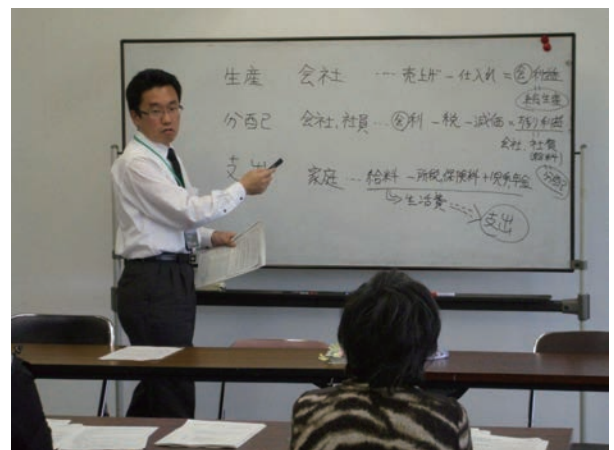 生産 会社 … 売上げ－仕入れ＝㊍利益
総生産
分配 会社、社員…㊍利－税－減価＝残り利益
会社、社員
給料
分配
支出 家庭…給料－所税、保険料＋児手、年金
生活費
支出